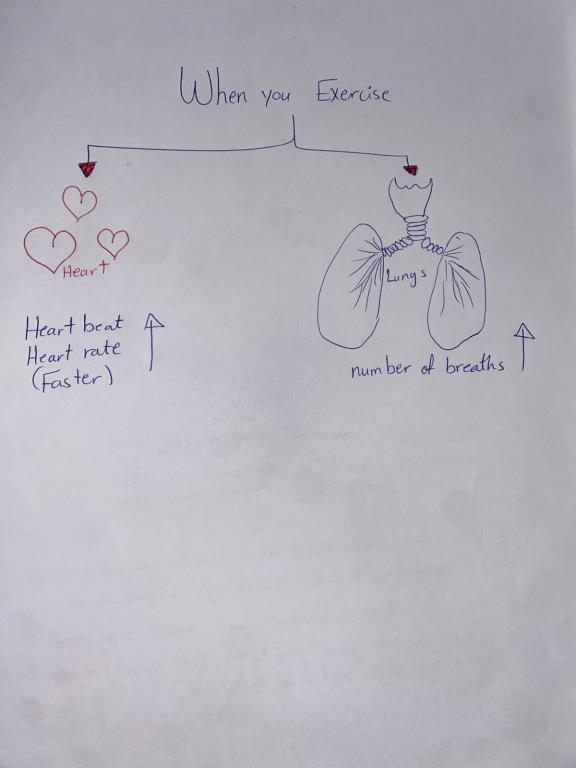 When you Exercise
Heart
Lungs
Heart beat
Heart rate
(Faster)
number of breaths